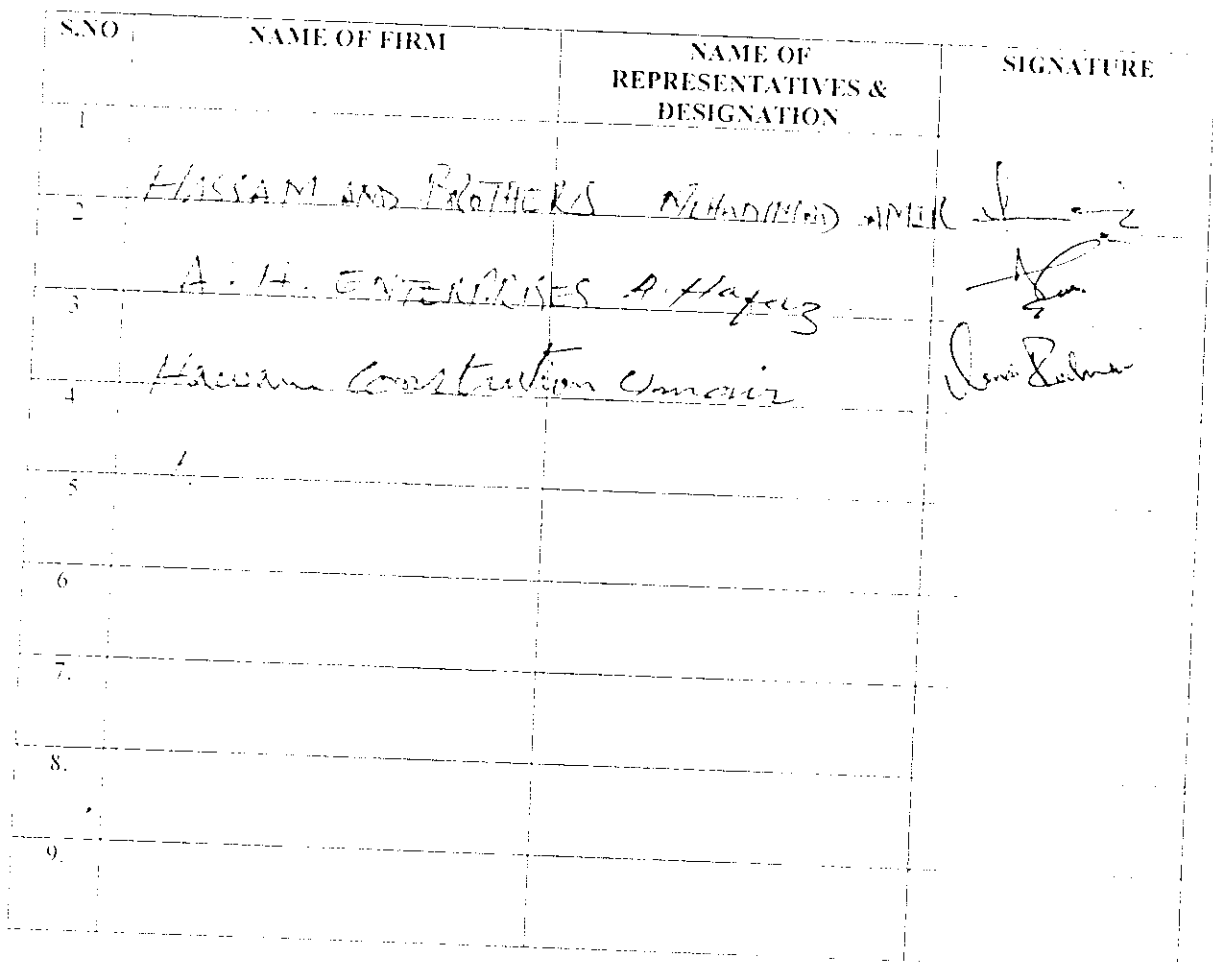 S.NO NAME OF FIRM NAME OF REPRESENTATIVES & DESIGNATION SIGNATURE
1 HASSAN AND BROTHERS MUHAMMAD AMIR
2 A. H. ENTERPRISES A. Hafeez
3 Construction Umair
4
5
6
7.
8.
9.